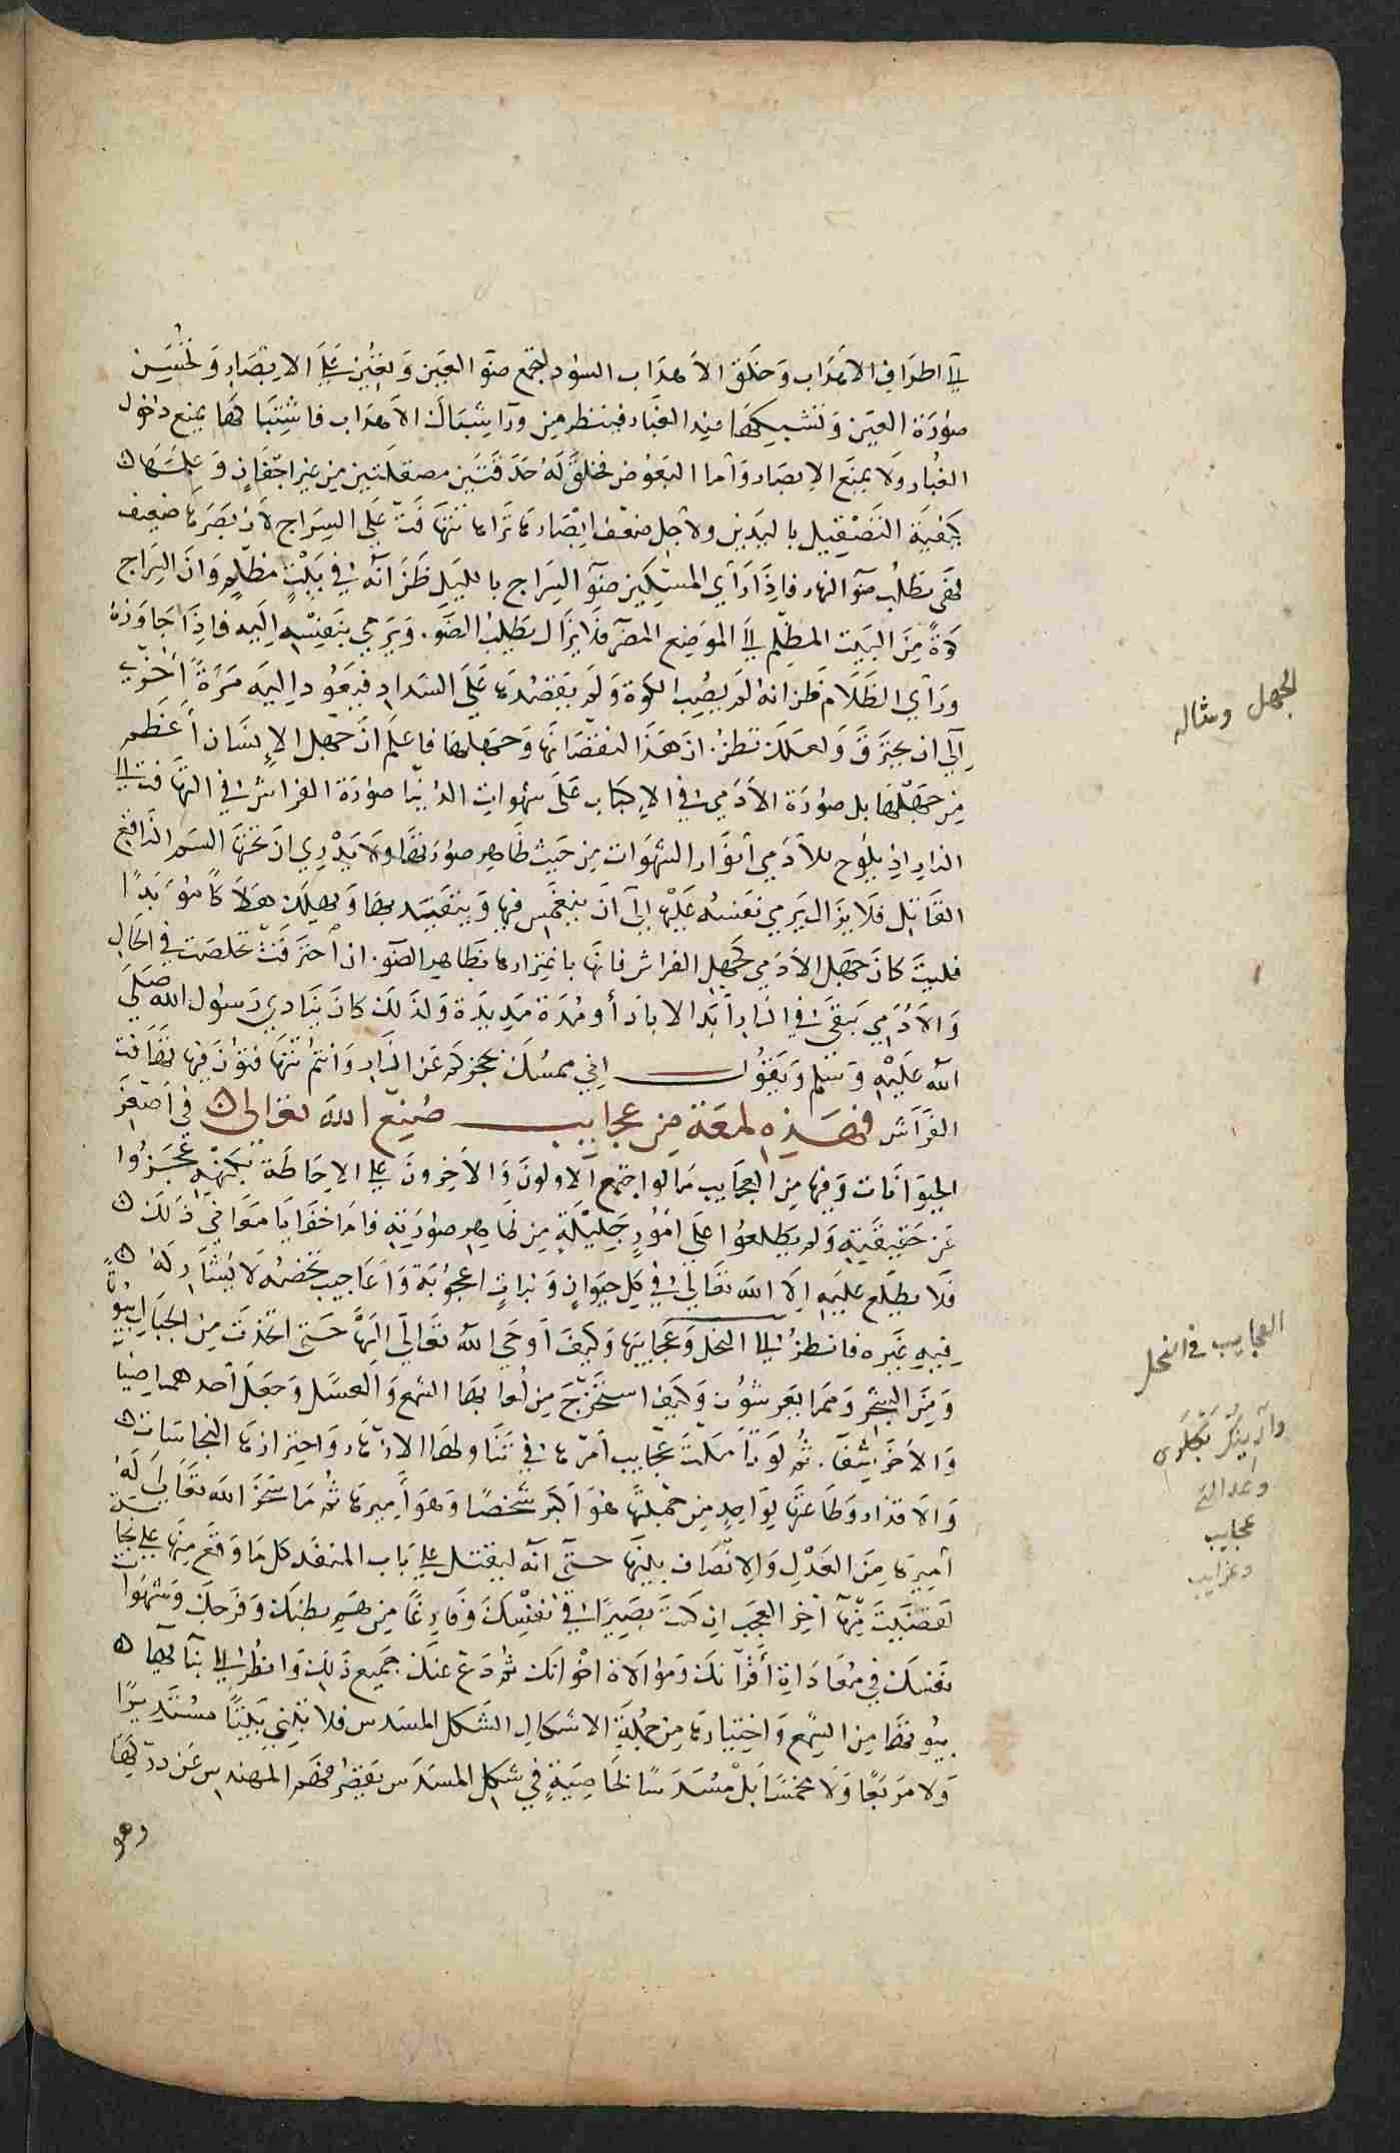 الى اطراف الاهداب وخلق الاهداب السود لتجمع ضوء العين وتعين على الابصار وتحسين
صورة العين وتشبيكها عند الغبار فينظر من وراء شباك الاهداب فاشتباكها يمنع دخول
الغبار ولا يمنع الابصار وأما البعوض فخلق له حدقتين مصقلتين من غير اجفان وعلمها
كيفية التصقيل باليدين ولاجل ضعف ابصارها تراها تتهافت على السراج لان بصرها ضعيف
فهى تطلب ضوء النهار فاذا رآى المسكين ضوء السراج بالليل ظن انه في بيت مظلم وان السراج
كوة من البيت المظلم الى الموضع المضئ فلا يزال يطلب الضوء ويرمي بنفسه اليه فاذا جاوزه
ورآى الظلام ظن انه لم يصب الكوة ولم يقصدها على السداد فيعود اليه مرة أخرى
إلى ان يحترق ولعلك تظن ان هذا لنقصانها وجهلها فاعلم ان جهل الإنسان أعظم
من جهلها بل صورة الآدمي في الإكباب على شهوات الدنيا صورة الفراش في التهافت الى
النار اذ يلوح للآدمي أنوار الشهوات من حيث ظاهر صورتها ولا يدري ان تحتها السم الناقع
القاتل فلا يزال يرمي نفسه عليها إلى أن ينغمس فيها ويتقيد بها ويهلك هلاكا مؤبدًا
فليت كان جهل الآدمي كجهل الفراش فانها باغترارها بظاهر الضوء ان احترقت تخلصت في الحال
والآدمي يبقى في النار أبد الاباد أو مدة مديدة ولذلك كان ينادي رسول الله صلى
الله عليه وسلم ويقول اني ممسك بحجزكم عن النار وانتم تتهافتون فيها تهافت
الفراش فهذه لمعة من عجايب صنع الله تعالى في اصغر
الحيوانات وفيها من العجايب ما لو اجتمع الاولون والاخرون على الاحاطة بكنهه عجزوا
عن حقيقته ولم يطلعوا على امور جليلة من ظاهر صورته فاما خفايا معاني ذلك
فلا يطلع عليه الا الله تعالى في كل حيوان ونبات اعجوبة وأعاجيب تخصه لا يشارك
فيه غيره فانظر الى النحل وعجايبها وكيف أوحى الله تعالى اليها حتى اتخذت من الجبال بيوتاً
ومن الشجر ومما يعرشون وكيف استخرج من لعابها الشمع والعسل وجعل أحدهما ضيا
والاخر شفآء ثم لو تأملت عجايب أمرها في تناولها الازهار واحترازها النجاسات
والاقذار وطاعتها لواحد من جملتها هو أكبر شخصًا وهو أميرها ثم ما سخر الله تعالى له
أميرها من العدل والانصاف بينها حتى انه ليقتل على باب المنفذ كل ما وقع منها على نجاسة
لقضيت منها آخر العجب ان كنت بصيرا في نفسك وفارغا من هم بطنك وفرجك وشهوات
نفسك في معاداة أقرانك وموالاة اخوانك ثم دع عنك جميع ذلك وانظر الى بنآئها
بيوتها من الشمع واختيارها من جملة الاشكال الشكل المسدس فلا تبني بيتًا مستديرًا
ولا مربعًا ولا مخمسًا بل مسدسًا لخاصية في شكل المسدس يقصر فهم المهندس عن دركها
وهو
الجهل ومثاله
العجايب في النحل
عجايب
وغرايب